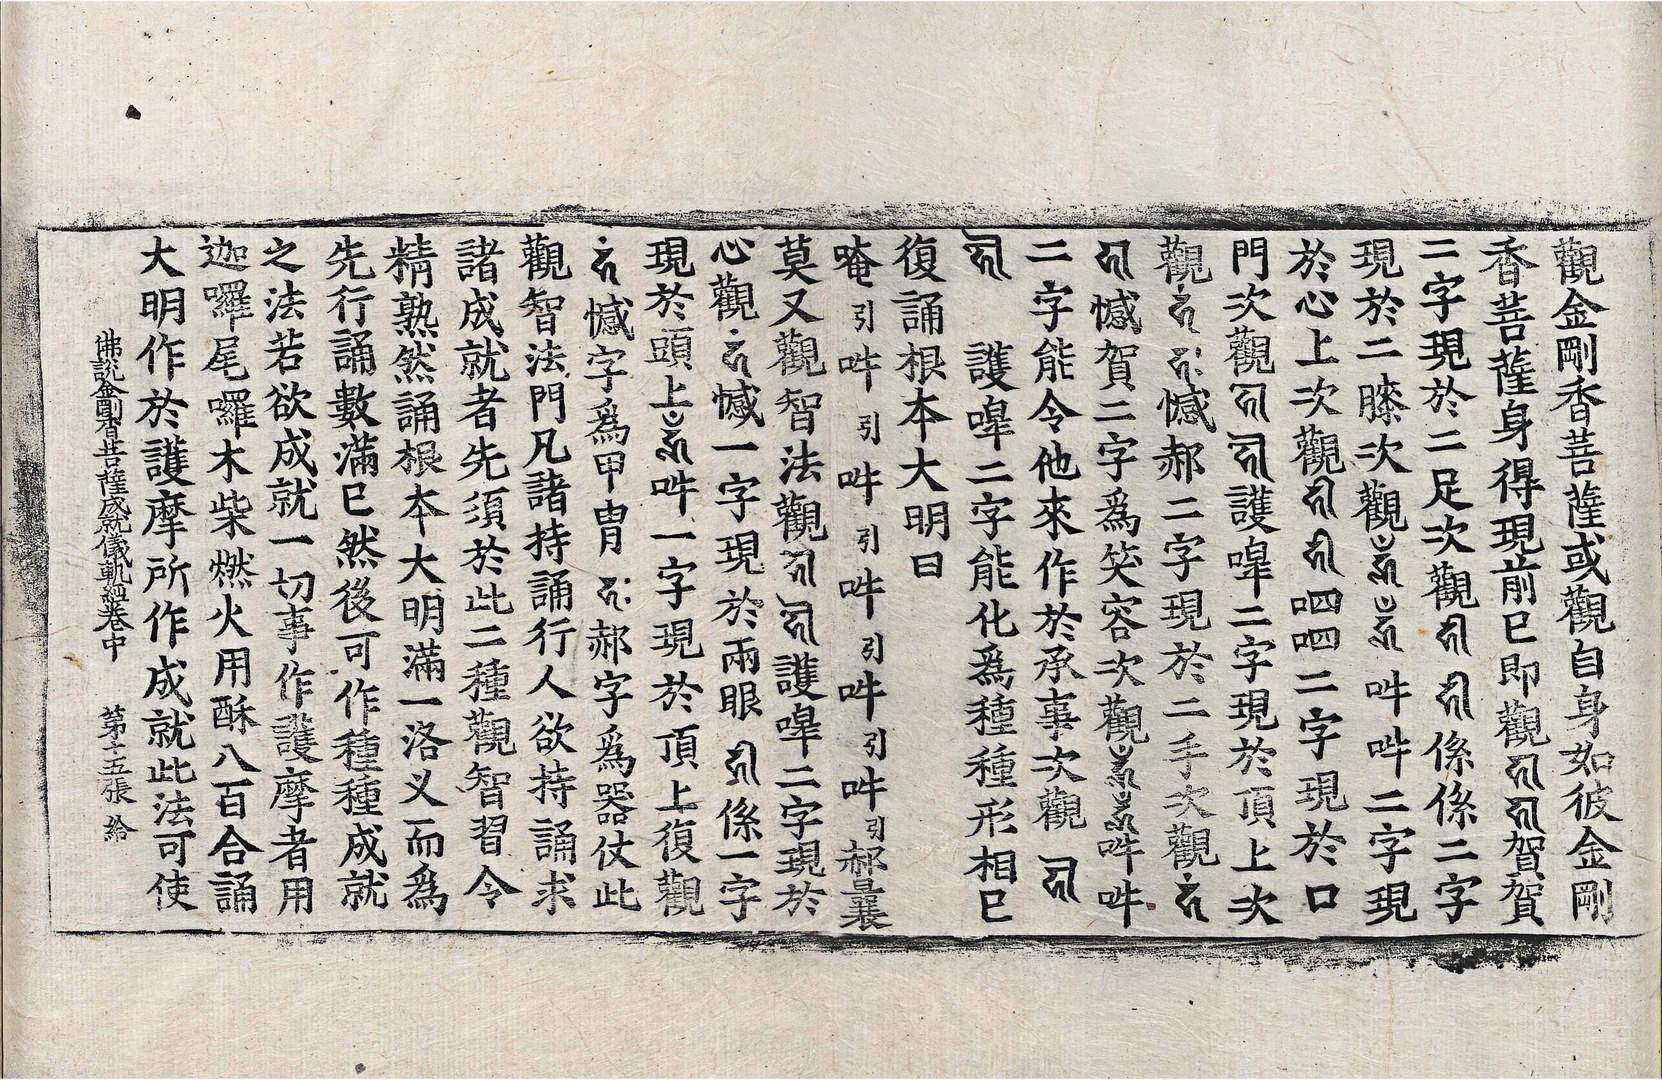 觀金剛香菩薩或觀自身如彼金剛
香菩薩身得現前已即觀賀賀
二字現於二足次觀係係二字
現於二膝次觀吽吽二字現
於心上次觀呬呬二字現於口
門次觀護嘷二字現於頂上次
觀憾郝二字現於二手次觀
憾賀二字爲笑容次觀吽吽
二字能令他來作於承事次觀
護嘷二字能化爲種種形相已
復誦根本大明曰
唵引吽引吽引吽引吽引吽引郝曩
莫又觀智法觀護嘷二字現於
心觀憾一字現於兩眼係一字
現於頭上吽一字現於頂上復觀
憾字爲甲冑郝字爲器仗此
觀智法門凡諸持誦行人欲持誦求
諸成就者先須於此二種觀智習令
精熟然誦根本大明滿一洛义而爲
先行誦數滿已然後可作種種成就
之法若欲成就一切事作護摩者用
迦囉尾囉木柴燃火用酥八百合誦
大明作於護摩所作成就此法可使
佛說金剛香菩薩成就儀軌經卷中 第十五張 給